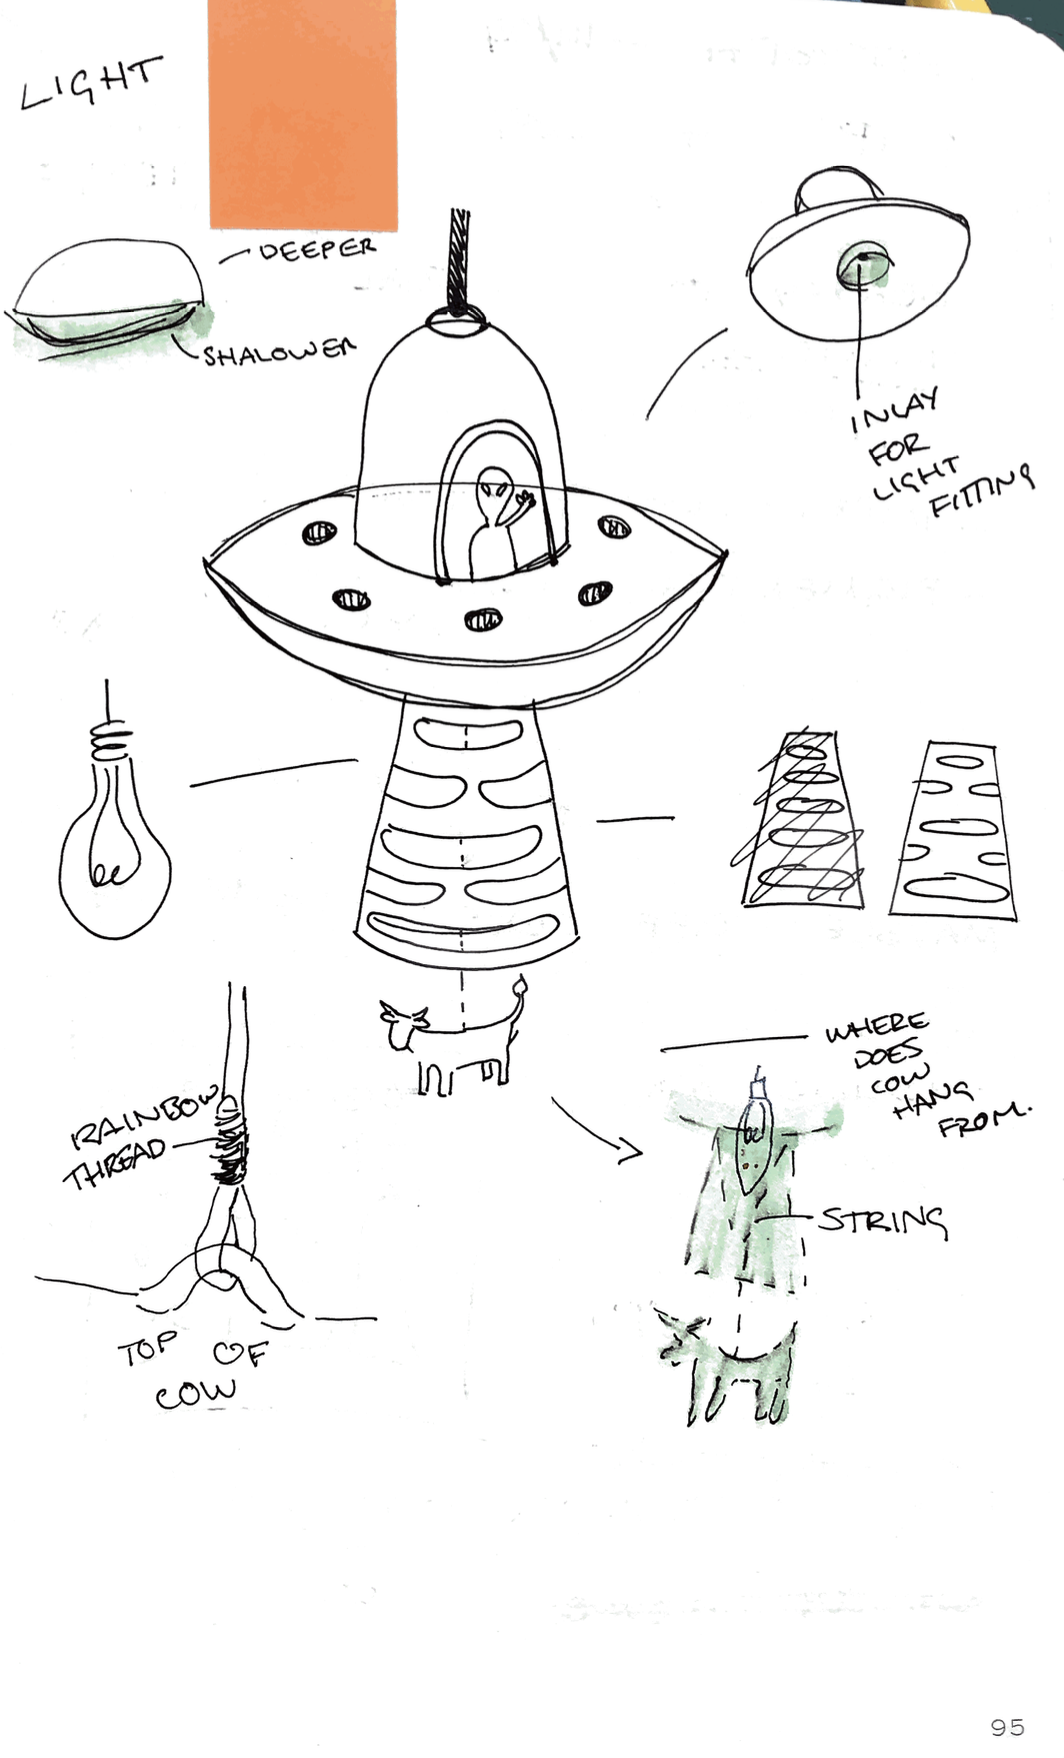 LIGHT
DEEPER
SHALOWER
INLAY
FOR
LIGHT
FITTING
WHERE
DOES
COW
HANG
FROM.
RAINBOW
THREAD
STRING
TOP OF
COW
95